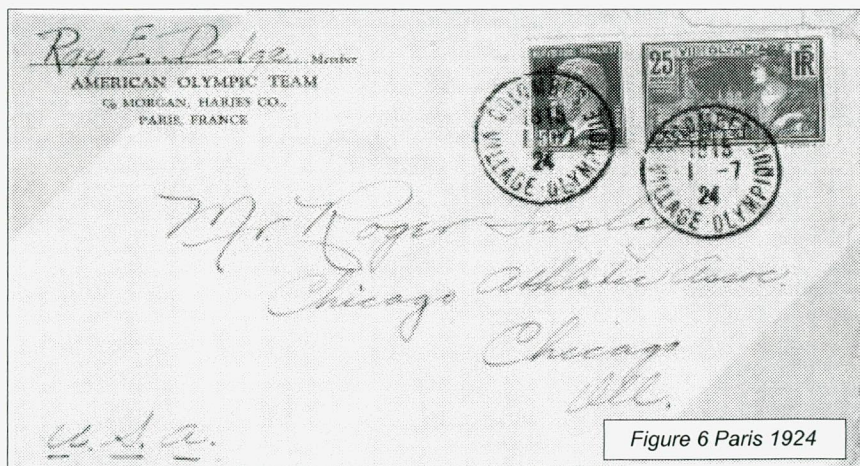 Ray E. Dodge Member
AMERICAN OLYMPIC TEAM
C/o MORGAN, HARJES CO.,
PARIS, FRANCE
25 VIIIe OLYMPIADE RF
50c
COLOMBES VILLAGE OLYMPIQUE
1815
24
COLOMBES VILLAGE OLYMPIQUE
1815
1 -7
24
Mr. Roger
Chicago Athletic Assoc.
Chicago
Ill.
U. S. A.
Figure 6 Paris 1924